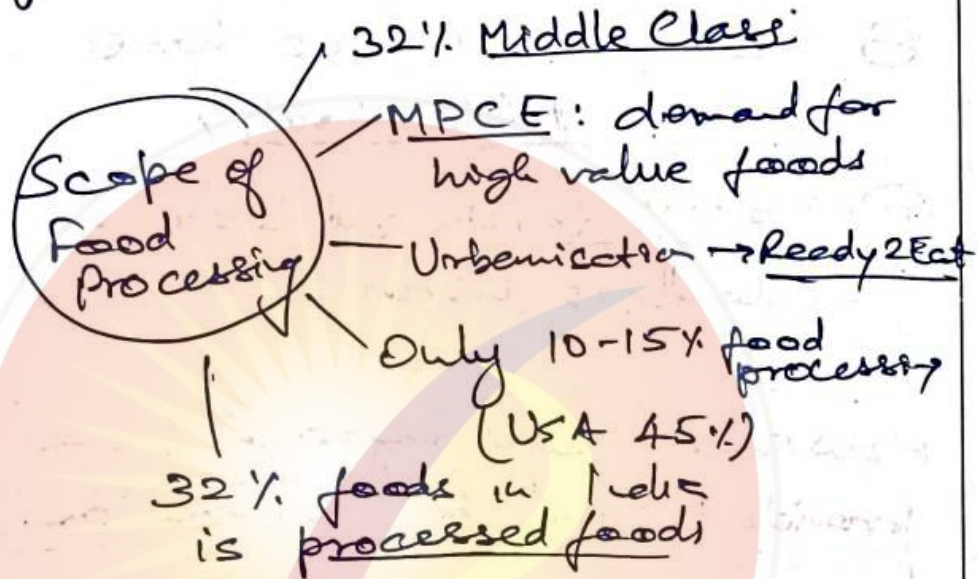 32% Middle Class
Scope of
Food
Processing
MPCE : demand for
high value foods
Urbanisation → Ready2Eat
Only 10-15% food
processing
(USA 45%)
32% foods in India
is processed foods